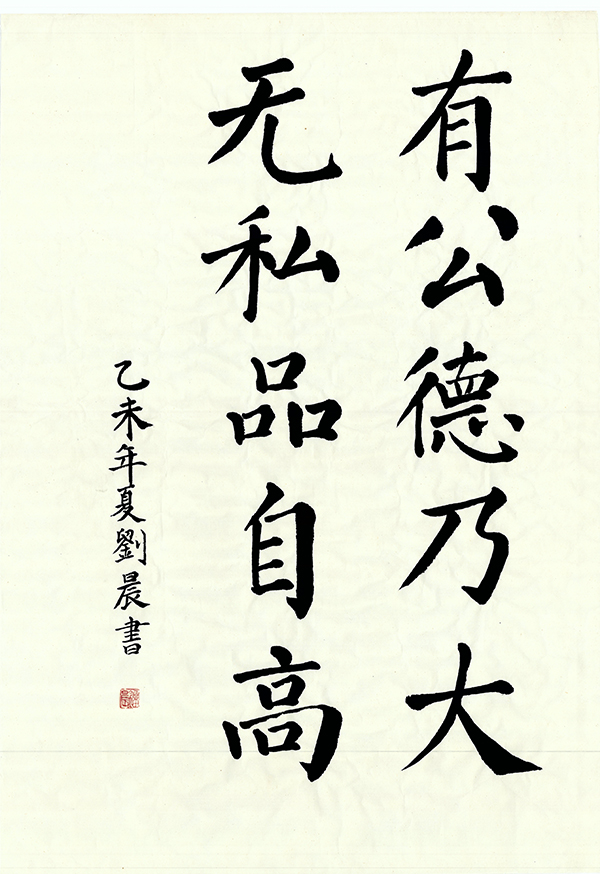 有公德乃大
无私品自高
乙未年夏劉晨書